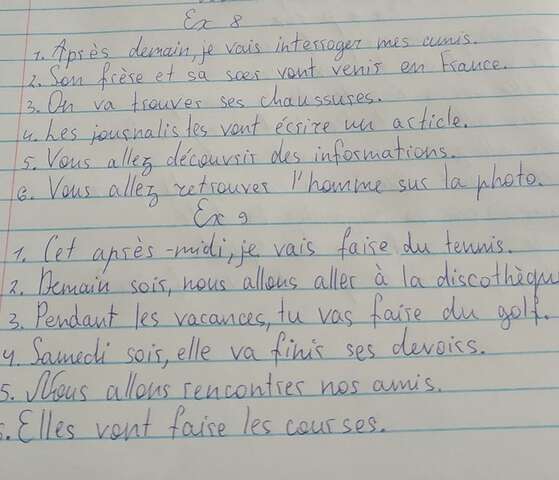 Ex 8
1. Après demain, je vais interroger mes amis.
2. Son frère et sa sœr vont venir en France.
3. On va trouver ses chaussures.
4. Les journalistes vont écrire un article.
5. Vous allez découvrir des informations.
6. Vous allez retrouver l'homme sur la photo.
Ex 9
1. Cet après-midi, je vais faire du tennis.
2. Demain soir, nous allons aller à la discothèqu
3. Pendant les vacances, tu vas faire du golf.
4. Samedi soir, elle va finir ses devoirs.
5. Nous allons rencontrer nos amis.
. Elles vont faire les courses.